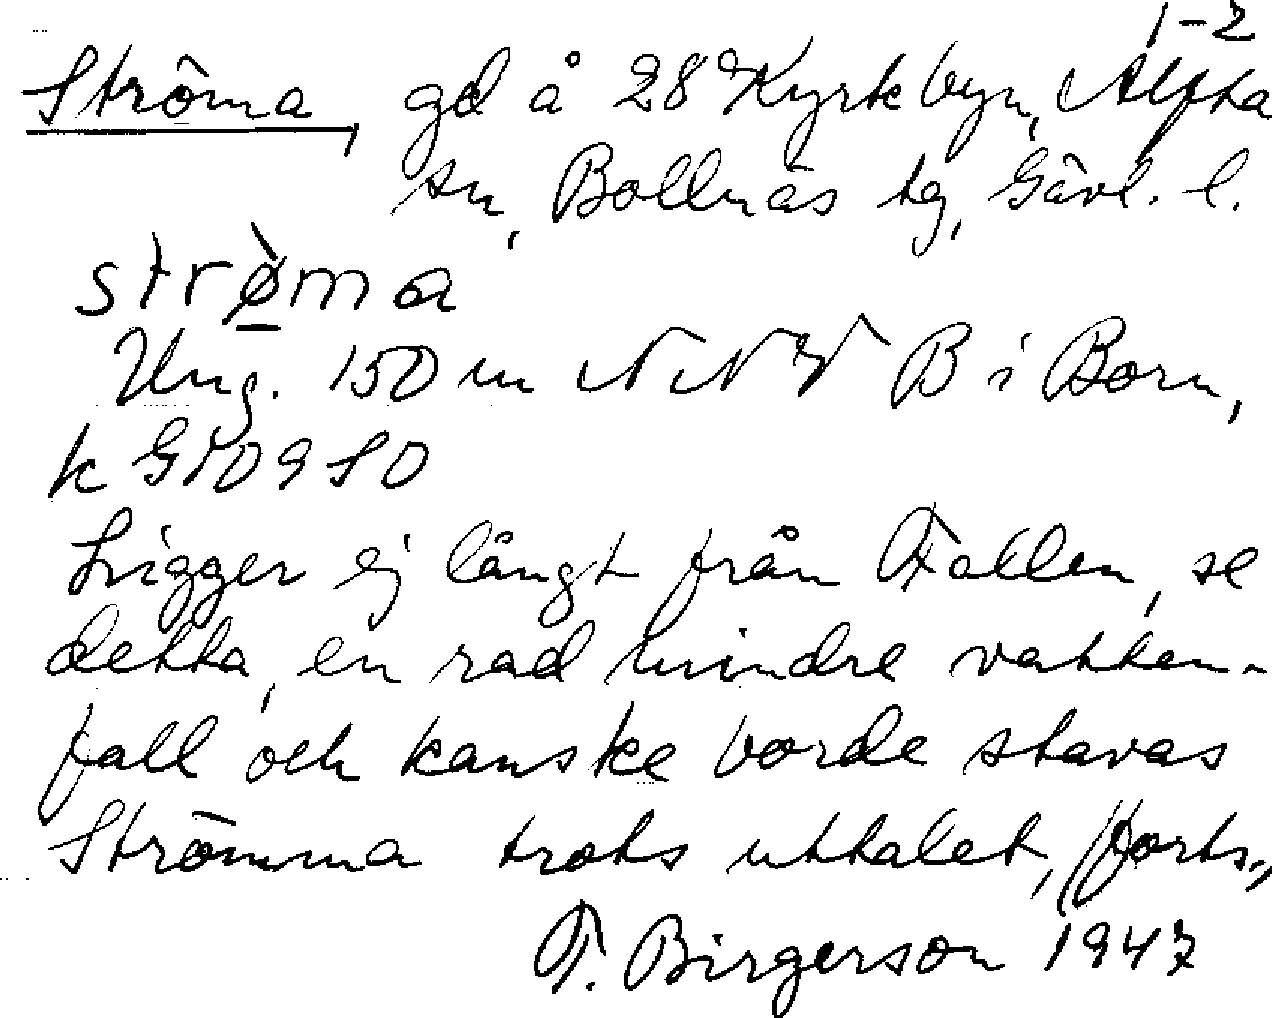 1-2
Ströma, gd å 28 Kyrkbyn, Alfta
sn, Bollnäs tg, Gävl. l.
strø̱̀ma
Ung. 150 m NNV B i Born,
k G10950
Ligger ej långt från Fallen, se
detta, en rad mindre vatten-
fall och kanske borde stavas
Strömma trots uttalet, (forts.,
F. Birgerson 1947